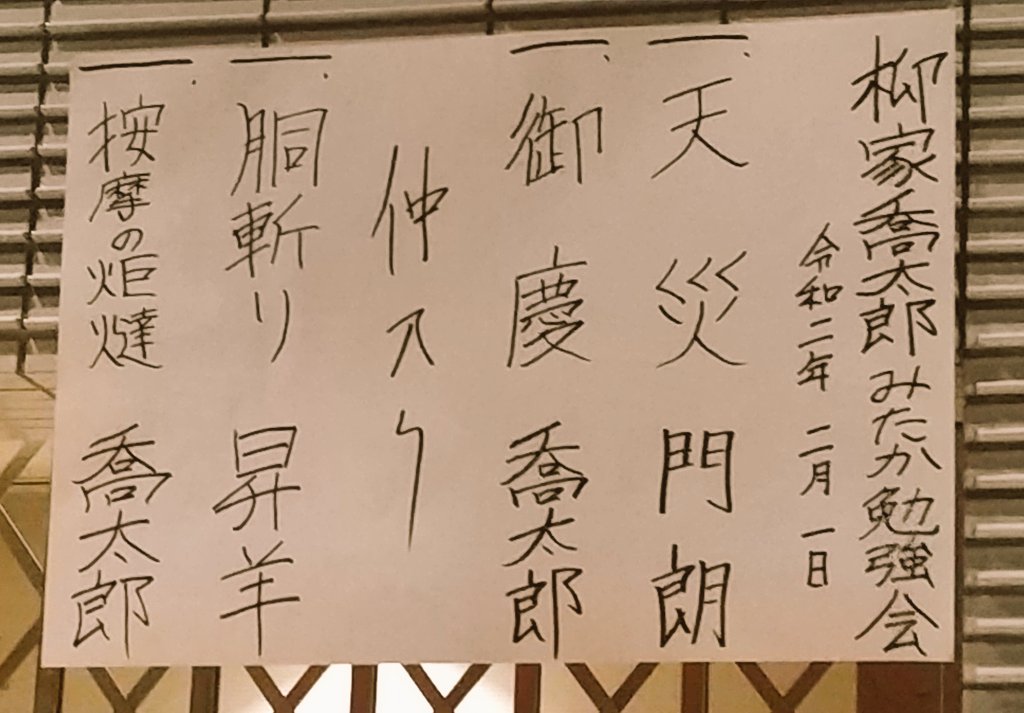 柳家喬太郎みたか勉強会
令和二年 二月 一日
一、天災 門朗
一、御慶 喬太郎
仲入り
一、胴斬り 昇羊
一、按摩の炬燵 喬太郎